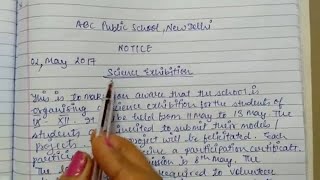 ABC Public School, New Delhi
NOTICE
02, May 2017
Science Exhibition
This is to make you aware that the school is
organising science exhibition for the students of
IX - XII. It be held from 11 May to 15 May. The
students are to submit their models /
projects project will be felicitated. Each
partici receive a participation certificate.
The ssion is 8th May. The
required to volunteer